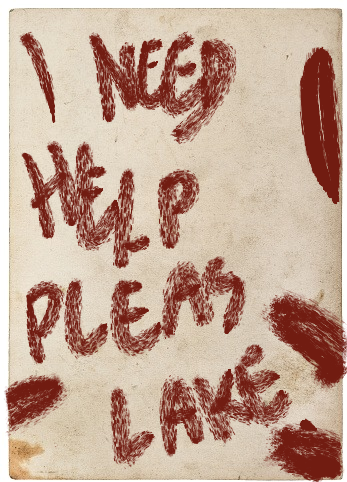 I NEED
HELP
PLEAS
LAKE